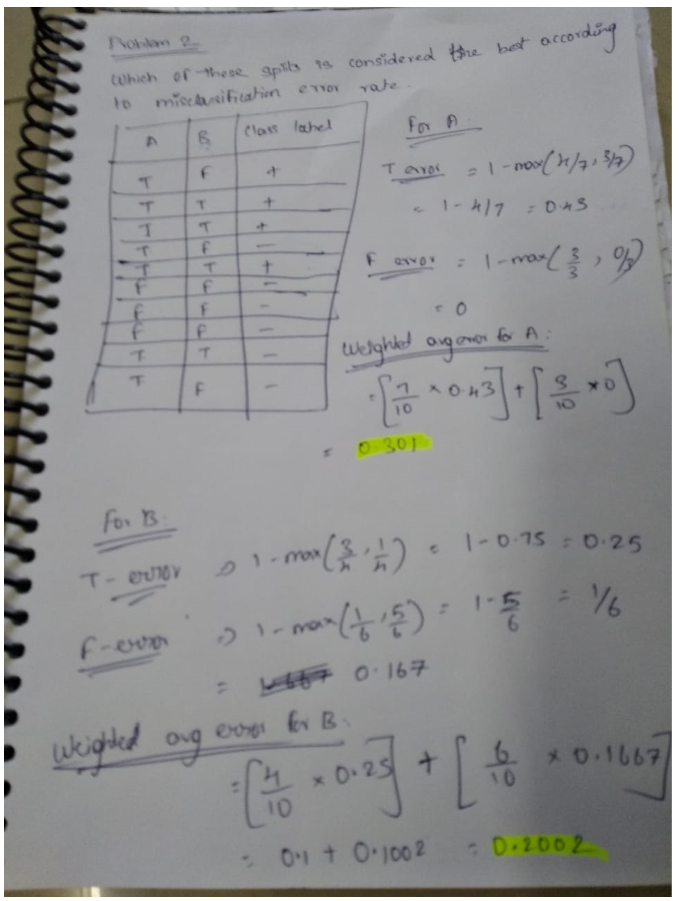 Problem 2
Which of these splits is considered the best according
to misclassification error rate.
A B Class label
T F +
T T +
T T +
T F -
T T +
F F -
F F -
F F -
T T -
T F -
For A
T error = 1-max(4/7, 3/7)
= 1-4/7 = 0.43
F error = 1-max(3/3, 0/3)
= 0
Weighted avg error for A:
=[7/10 × 0.43]+[3/10 ×0]
= 0.301
For B:
T-error ⇒ 1-max(3/4, 1/4) = 1-0.75 = 0.25
F-error ⇒ 1-max(1/6, 5/6) = 1-5/6 = 1/6
= 0.167
Weighted avg error for B.
=[4/10 × 0.25] + [6/10 × 0.1667]
= 0.1 + 0.1002 = 0.2002